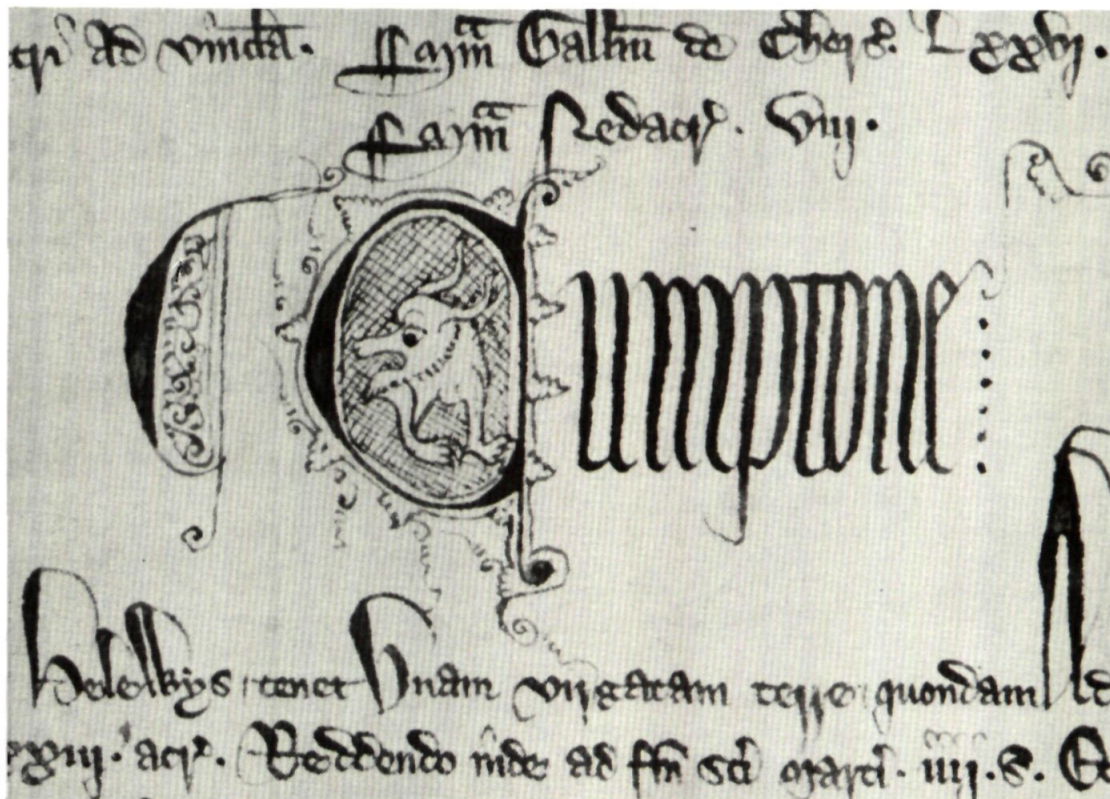 tri ad vincla. Sum̄a Gallin̄ de Chers. Lxxvj.
Sum̄a Sedacr̄. viij.
Cumptone
Helewys tenet Unam virgatam terre quondam Ad
xxiij. acr̄. Reddendo inde ad fm̄ sc̄i Marci. iiij. s. Et